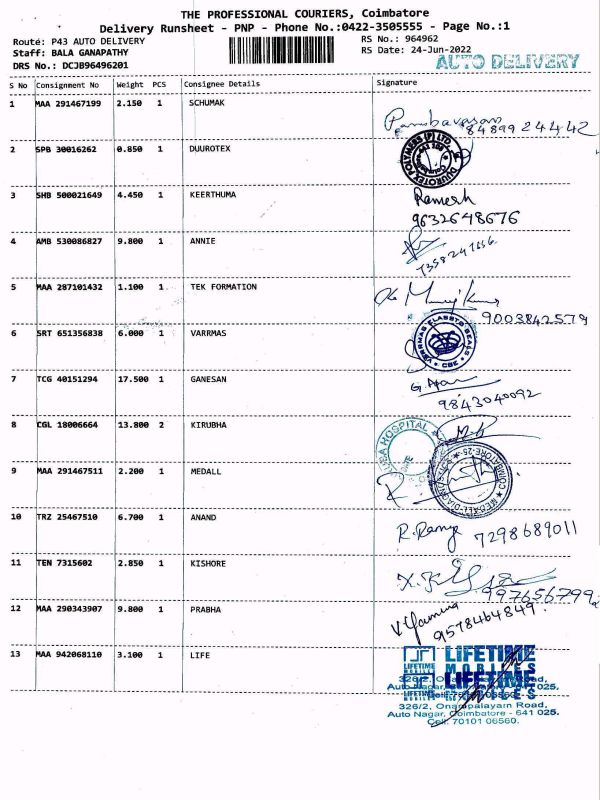 THE PROFESSIONAL COURIERS, Coimbatore
Delivery Runsheet - PNP - Phone No.:0422-3505555 - Page No.:1
Route: P43 AUTO DELIVERY
RS No.: 964962
Staff: BALA GANAPATHY
RS Date: 24-Jun-2022
AUTO DELIVERY
DRS No.: DCJB96496201
S No Consignment No Weight PCS Consignee Details Signature
1 MAA 291467199 2.150 1 SCHUMAK
84899 24442
2 SPB 30016262 0.850 1 DUUROTEX
DUUROTEX POLYMERS (P) LTD
3 SHB 500021649 4.450 1 KEERTHUMA
Ramesh
9632648676
4 AMB 530086827 9.800 1 ANNIE
5 MAA 287101432 1.100 1 TEK FORMATION
9003842579
6 SRT 651356838 6.000 1 VARRMAS
CBE
7 TCG 40151294 17.500 1 GANESAN
9843040092
8 CGL 18006664 13.800 2 KIRUBHA
HOSPITAL
9 MAA 291467511 2.200 1 MEDALL
10 TRZ 25467510 6.700 1 ANAND
7298689011
11 TEN 7315602 2.850 1 KISHORE
12 MAA 290343907 9.800 1 PRABHA
9578464849
13 MAA 942068110 3.100 1 LIFE
LIFETIME
LIFETIME
326/2, Onarapalayam Road,
Auto Nagar, Coimbatore - 641 025.
Cell: 70101 06560.